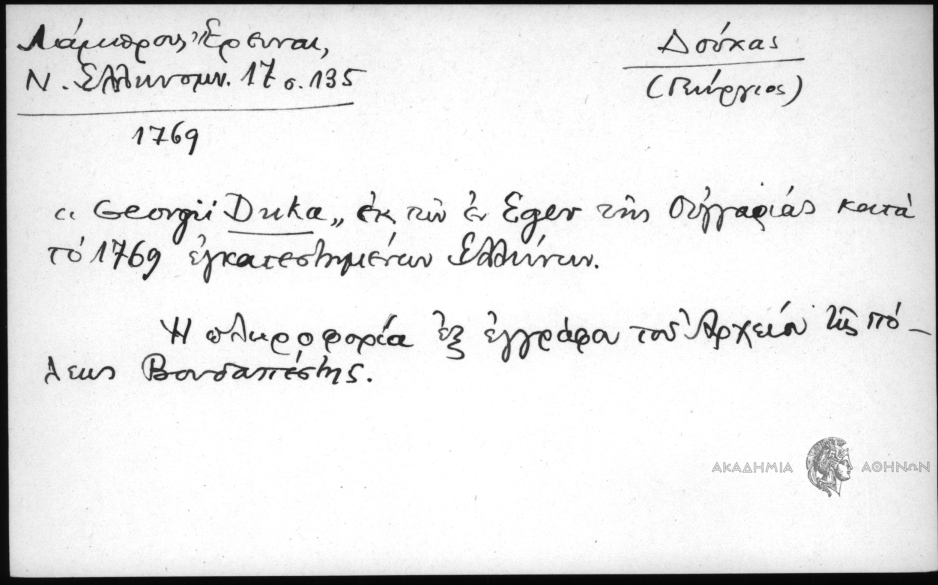 Λάμπρου, Ἔρευναι,
Ν. Ἑλληνομν. 17 σ. 135
1769
Δούκας
(Γεώργιος)
"Georgii Duka„ ἐκ τῶν ἐν Eger τῆς Οὑγγαρίας κατὰ
τό 1769 ἐγκατεστημένων Ἑλλήνων.
Ἡ πληροφορία ἐξ ἐγγράφου τοῦ Ἀρχείου τῆς πό-
λεως Βουδαπέστης.
ΑΚΑΔΗΜΙΑ ΑΘΗΝΩΝ